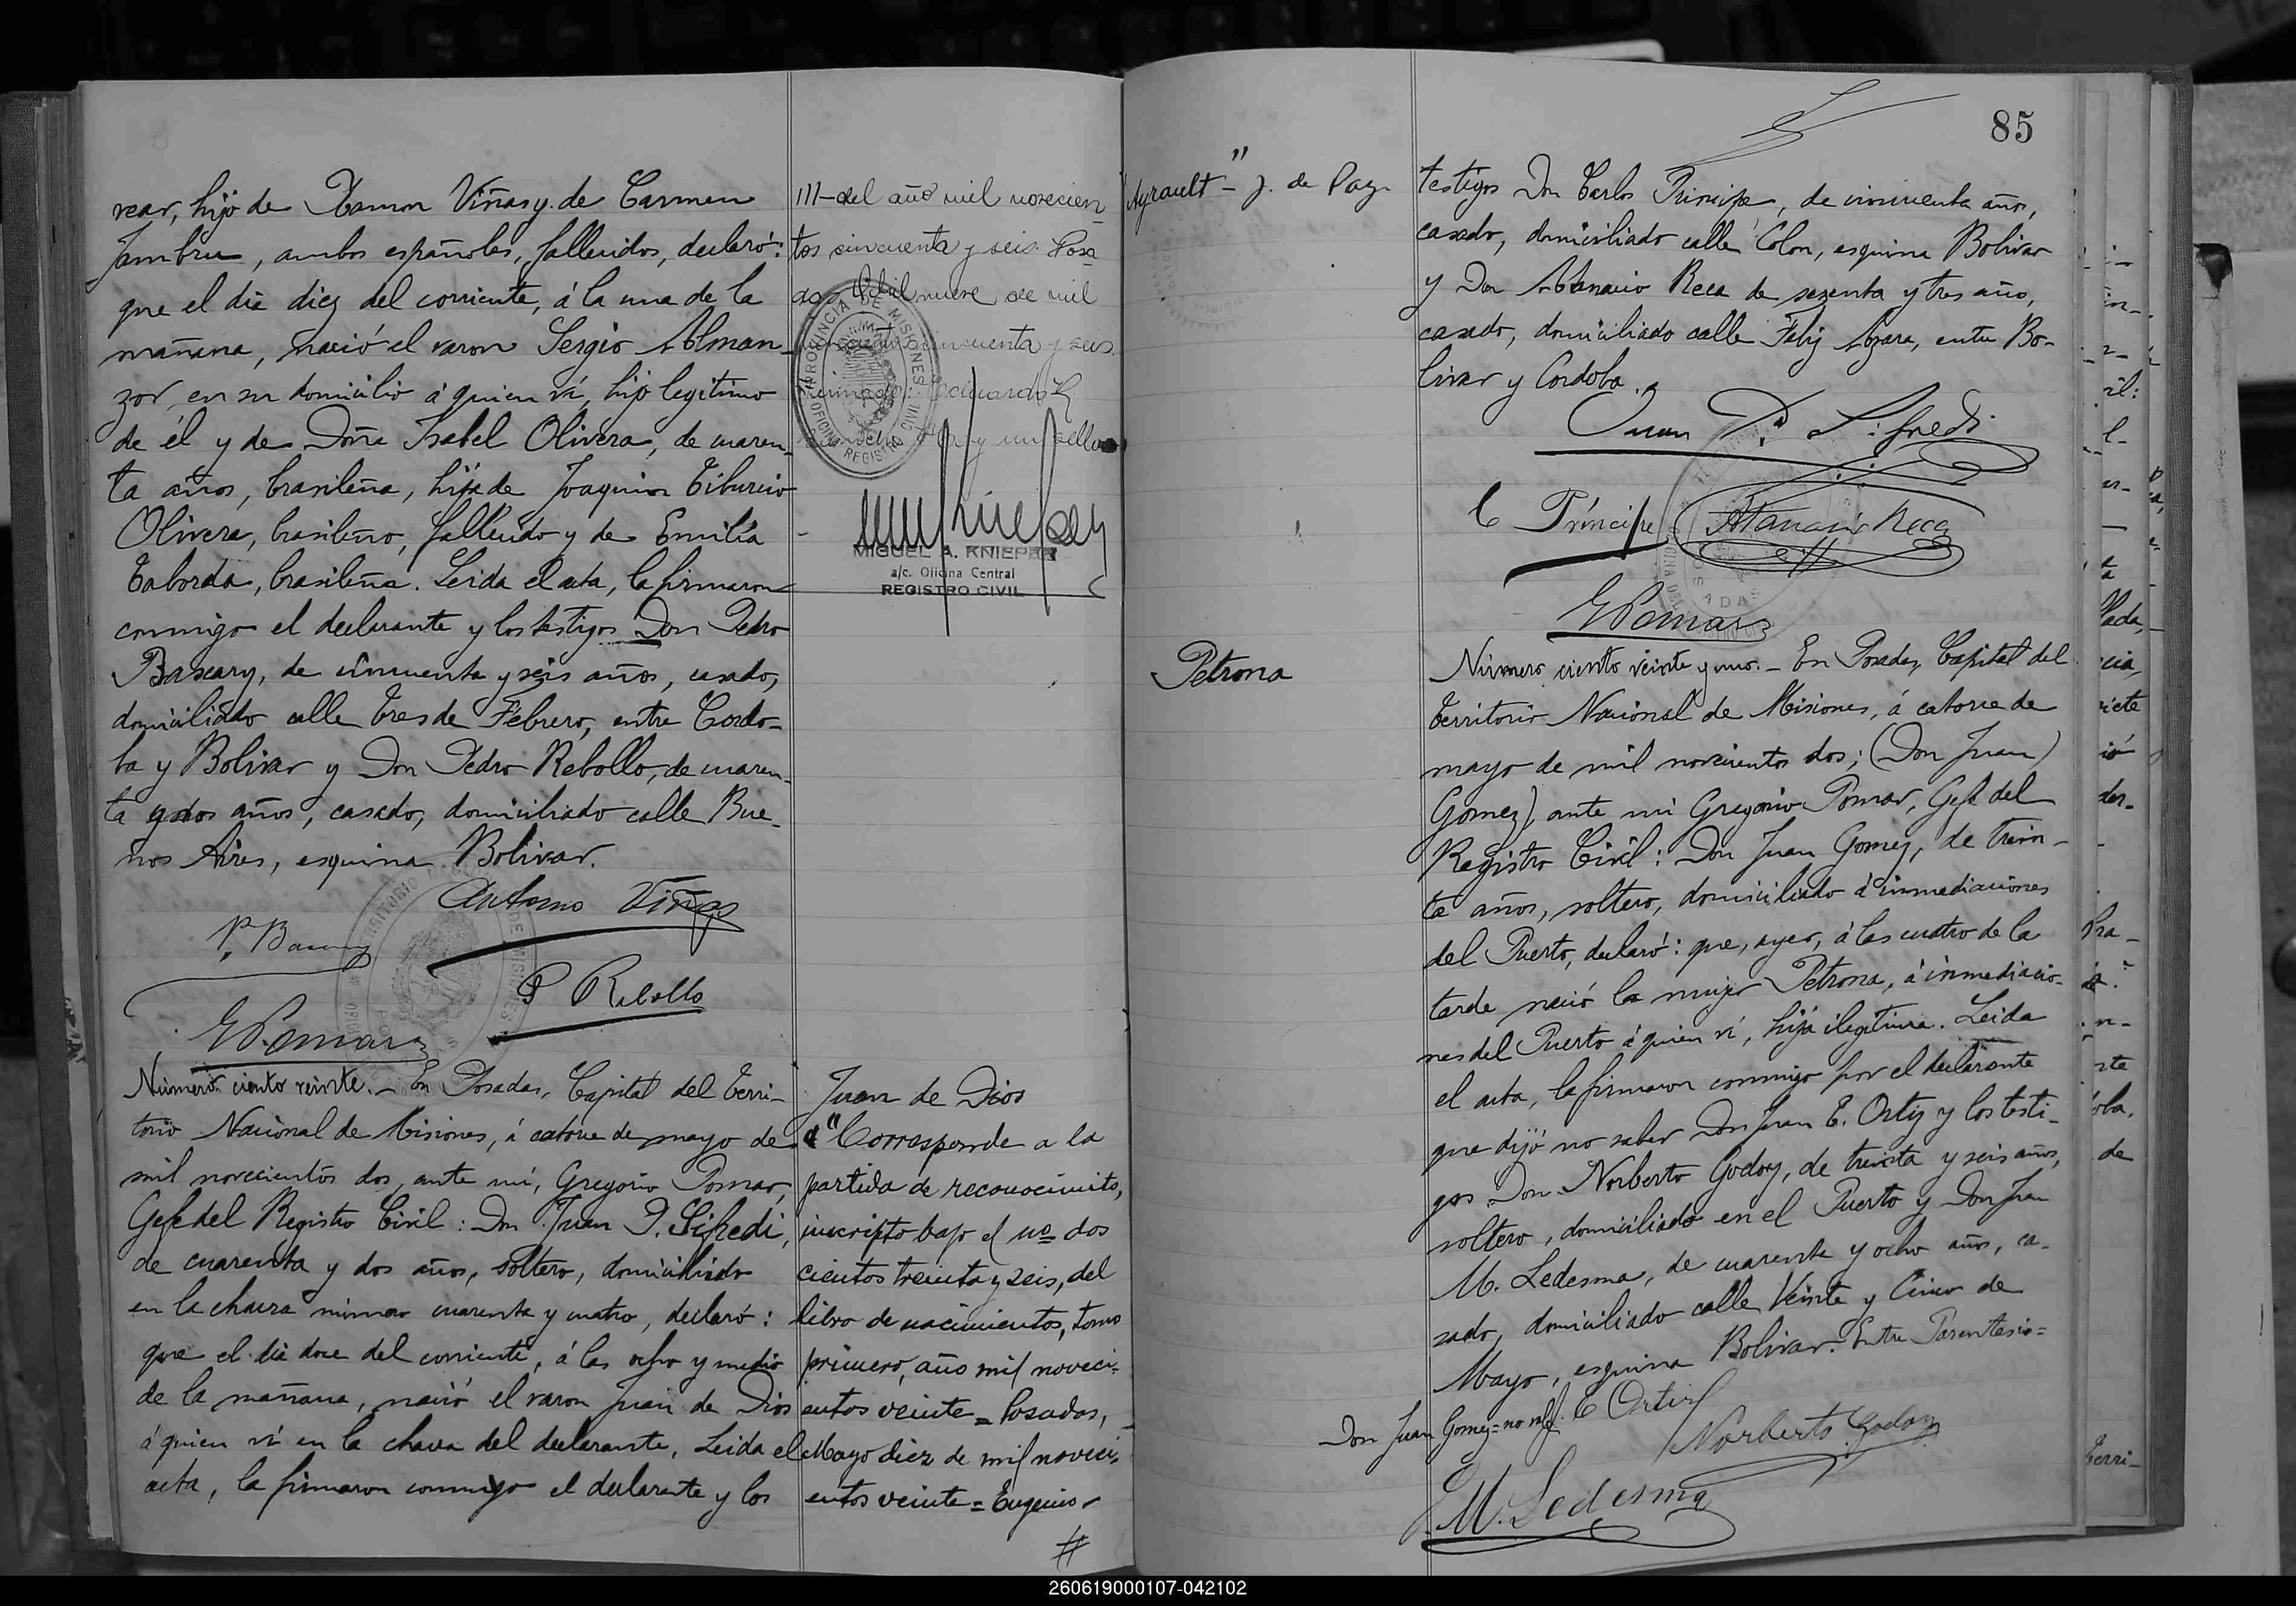 rear, hijo de Ramon Viñas y de Carmen
Jambru, ambos españoles, fallecidos, declaró:
que el dia diez del corriente, á la una de la
mañana, nació el varon Sergio Alman-
zor, en su domicilio á quien ví, hijo legitimo
de él y de Doña Isabel Olivera, de cuaren-
ta años, brasileña, hija de Joaquin Tiburcio
Olivera, brasileño, fallecido y de Emilia
Taborda, brasileña. Leida el acta, la firmaron
conmigo el declarante y los testigos Don Pedro
Bascary, de cincuenta y seis años, casado,
domiciliado calle Tres de Febrero, entre Cordo-
ba y Bolivar y Don Pedro Rebollo, de cuaren-
ta y dos años, casado, domiciliado calle Bue-
nos Aires, esquina Bolivar.
Antonio Viñas
P. Bascary
P Rebollo
G Pomar
Número ciento veinte. - En Posadas, Capital del Terri-
torio Nacional de Misiones, á catorce de mayo de
mil novecientos dos, ante mí, Gregorio Pomar,
Gefe del Registro Civil: Don Juan P. Sifredi,
de cuarenta y dos años, soltero, domiciliado
en la chacra número cuarenta y cuatro, declaró:
que el dia doce del corriente, á las ocho y media
de la mañana, nació el varon Juan de Dios
á quien ví en la chacra del declarante. Leida el
acta, la firmaron conmigo el declarante y los
III-del año mil novecien
tos cincuenta y seis. Posa
das, Abril nueve de mil
cincuenta y seis.
y un sello
PROVINCIA DE MISIONES
OFICINA REGISTRO CIVIL
MIGUEL A. KNIEPER
a/c. Oficina Central
REGISTRO CIVIL
Juan de Dios
"Corresponde a la
partida de reconocimito,
inscripto bajo el nº dos
cientos treinta y seis, del
libro de nacimientos, tomo
primero, año mil noveci-
entos veinte = Posadas,
Mayo diez de mil noveci-
entos veinte = Eugenio
#
Ayrault" - J. de Paz
85
testigos Don Carlos Principe, de cincuenta años,
casado, domiciliado calle Colon, esquina Bolivar
y Don Atanacio Reca de sesenta y tres años,
casado, domiciliado calle Feliz Azara, entre Bo-
livar y Cordoba.
Juan P. Sifredi
C Príncipe
Atanacio Reca
G Pomar
Petrona
Número ciento veinte y uno. - En Posadas, Capital del
Territorio Nacional de Misiones, á catorce de
mayo de mil novecientos dos; (Don Juan)
Gomez), ante mi Gregorio Pomar, Gefe del
Registro Civil: Don Juan Gomez, de trein-
ta años, soltero, domiciliado á inmediaciones
del Puerto, declaró: que, ayer, á las cuatro de la
tarde nació la mujer Petrona, á inmediacio-
nes del Puerto á quien ví, hija ilegitima. Leida
el acta, la firmaron conmigo por el declarante
que dijó no saber Don Juan E. Ortiz y los testi-
gos Don Norberto Godoy, de treinta y seis años,
soltero, domiciliado en el Puerto y Don Juan
M. Ledesma, de cuarenta y ocho años, ca-
sado, domiciliado calle Veinte y Cinco de
Mayo, esquina Bolivar. Entre Parentesis=
Don Juan Gomez=no vale. E Ortiz
Norberto Godoy
M. Ledesma
260619000107-042102